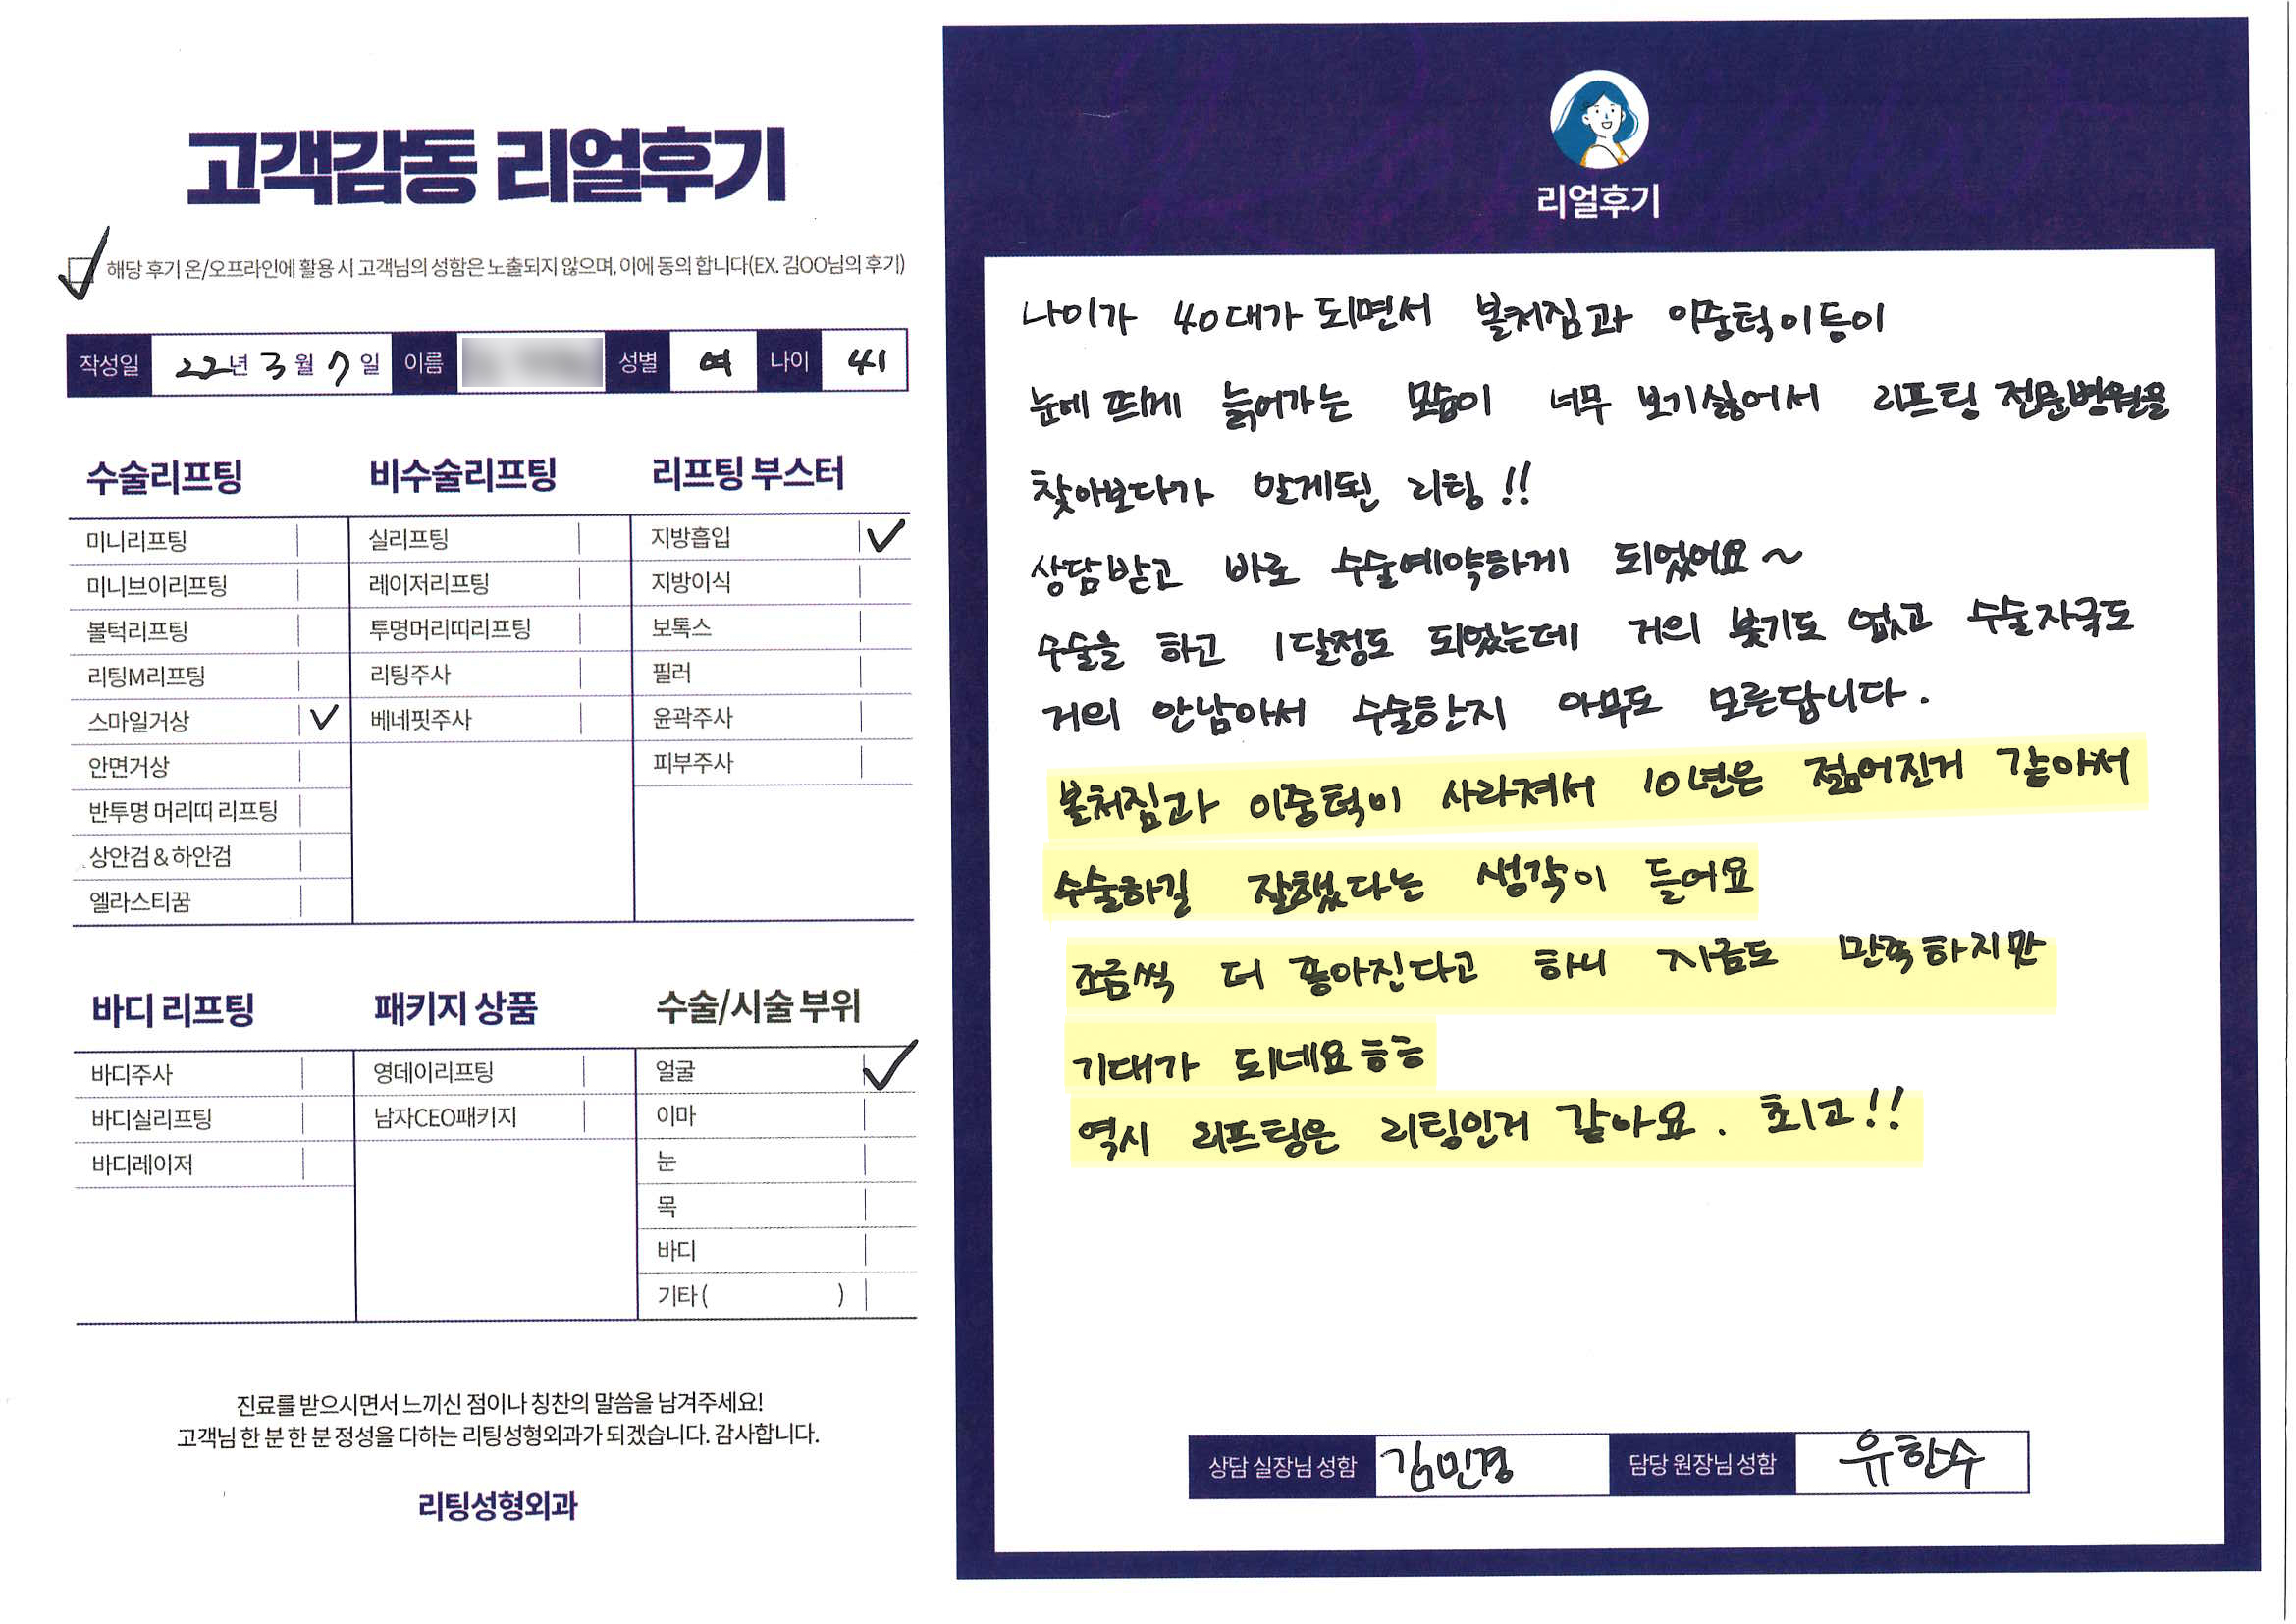 고객감동 리얼후기
해당 후기 온/오프라인에 활용 시 고객님의 성함은 노출되지 않으며, 이에 동의 합니다(EX. 김OO님의 후기)
작성일 22년 3월 7일 이름 성별 여 나이 41
수술리프팅
미니리프팅
미니브이리프팅
볼턱리프팅
리팅M리프팅
스마일거상
안면거상
반투명 머리띠 리프팅
상안검 & 하안검
엘라스티꿈
비수술리프팅
실리프팅
레이저리프팅
투명머리띠리프팅
리팅주사
베네핏주사
리프팅 부스터
지방흡입
지방이식
보톡스
필러
윤곽주사
피부주사
바디 리프팅
바디주사
바디실리프팅
바디레이저
패키지 상품
영데이리프팅
남자CEO패키지
수술/시술 부위
얼굴
이마
눈
목
바디
기타 ( )
진료를 받으시면서 느끼신 점이나 칭찬의 말씀을 남겨주세요!
고객님 한 분 한 분 정성을 다하는 리팅성형외과가 되겠습니다. 감사합니다.
리팅성형외과
리얼후기
나이가 40대가 되면서 볼처짐과 이중턱이등이
눈에 띄게 늙어가는 모습이 너무 보기싫어서 리프팅 전문병원을
찾아보다가 알게된 리팅!!
상담받고 바로 수술예약하게 되었어요~
수술을 하고 1달정도 되었는데 거의 붓기도 없고 수술자국도
거의 안남아서 수술한지 아무도 모른답니다.
볼처짐과 이중턱이 사라져서 10년은 젊어진거 같아서
수술하길 잘했다는 생각이 들어요
조금씩 더 좋아진다고 하니 지금도 만족하지만
기대가 되네요ㅎㅎ
역시 리프팅은 리팅인거 같아요. 최고!!
상담 실장님 성함 김민경 담당 원장님 성함 유한수